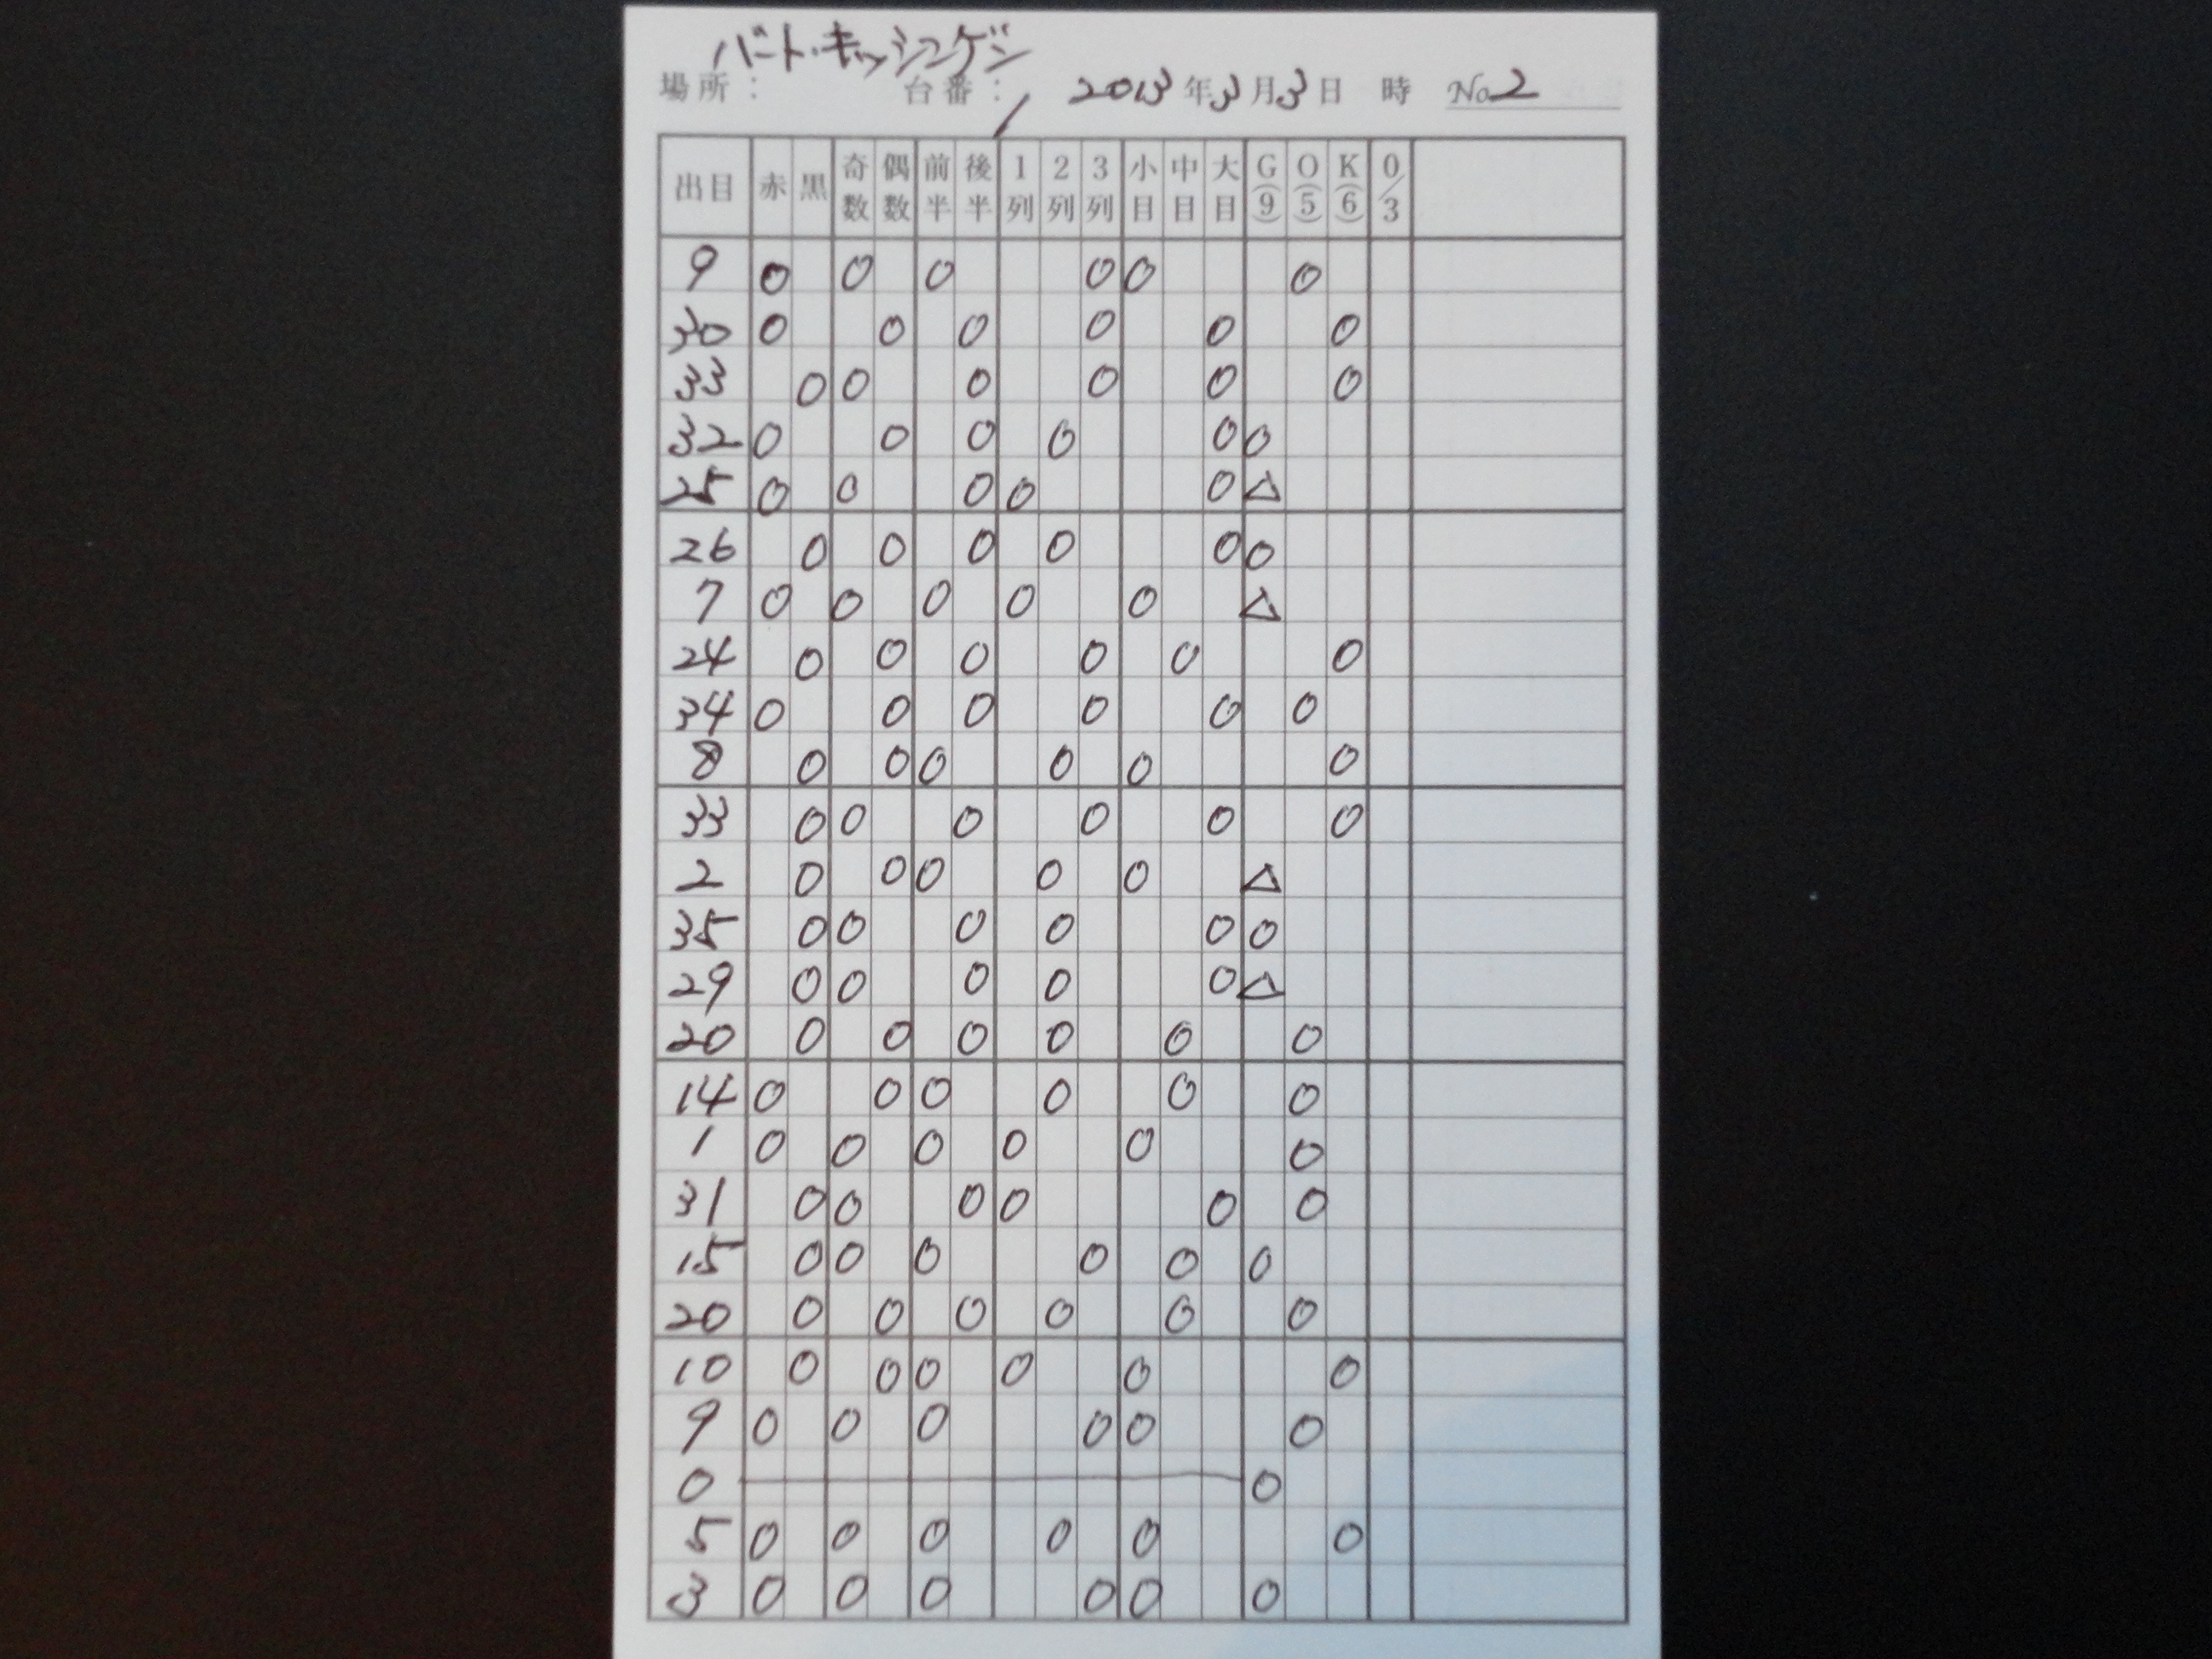 バート・キッシンゲン
場所： 台番： 1 2013年3月3日 時 No.2
出目 赤 黒 奇数 偶数 前半 後半 1列 2列 3列 小目 中目 大目 G(9) O(5) K(6) 0/3
9 O O O O O O
30 O O O O O O
33 O O O O O O
32 O O O O O O
25 O O O O O △
26 O O O O O O
7 O O O O O △
24 O O O O O O
34 O O O O O O
8 O O O O O O
33 O O O O O O
2 O O O O O △
35 O O O O O O
29 O O O O O △
20 O O O O O O
14 O O O O O O
1 O O O O O O
31 O O O O O O
15 O O O O O O
20 O O O O O O
10 O O O O O O
9 O O O O O O
0 O
5 O O O O O O
3 O O O O O O